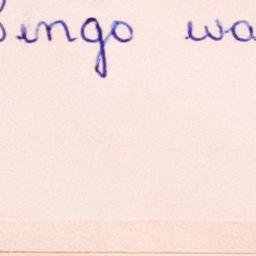 ingo wa